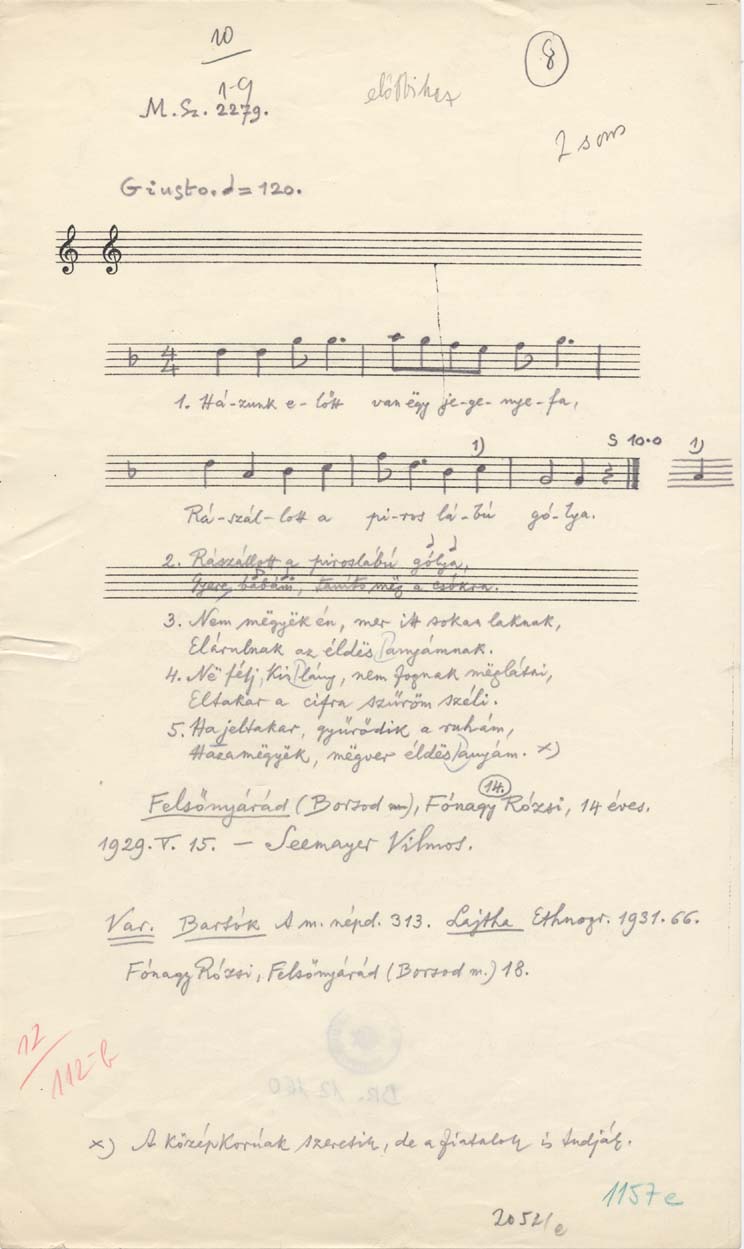 10
8
1-9
M. Sz. 2279.
előbbihez
2 soros
Giusto. = 120.
4
4
1. Há-zunk e-lőtt van ëgy je-ge-nye-fa,
1) S 10.0 1)
Rá-szál-lott a pi-ros lá-bú gó-lya.
2. Rászállott a piroslábú gólja,
Gyere, babám, taníts mëg a csókra.
3. Nem mëgyëk én, mer itt sokan laknak,
Elárulnak az éldës anyámnak.
4. Në félj, kislány, nem fognak mëglátni,
Eltakar a cifra szűröm széli.
5. Ha jeltakar, gyűrődik a ruhám,
Hazamëgyëk, mëgver éldës anyám. x)
14.
Felsőnyárád (Borsod m.), Fónagy Rózsi, 14 éves.
1929. V. 15. — Seemayer Vilmos.
Var. Bartók A m. népd. 313. Lajtha Ethnogr. 1931. 66.
Fónagy Rózsi, Felsőnyárád (Borsod m.) 18.
12/112-b
BR. 12 160
x) A középkorúak szeretik, de a fiatalok is tudják.
1157e
2052/e